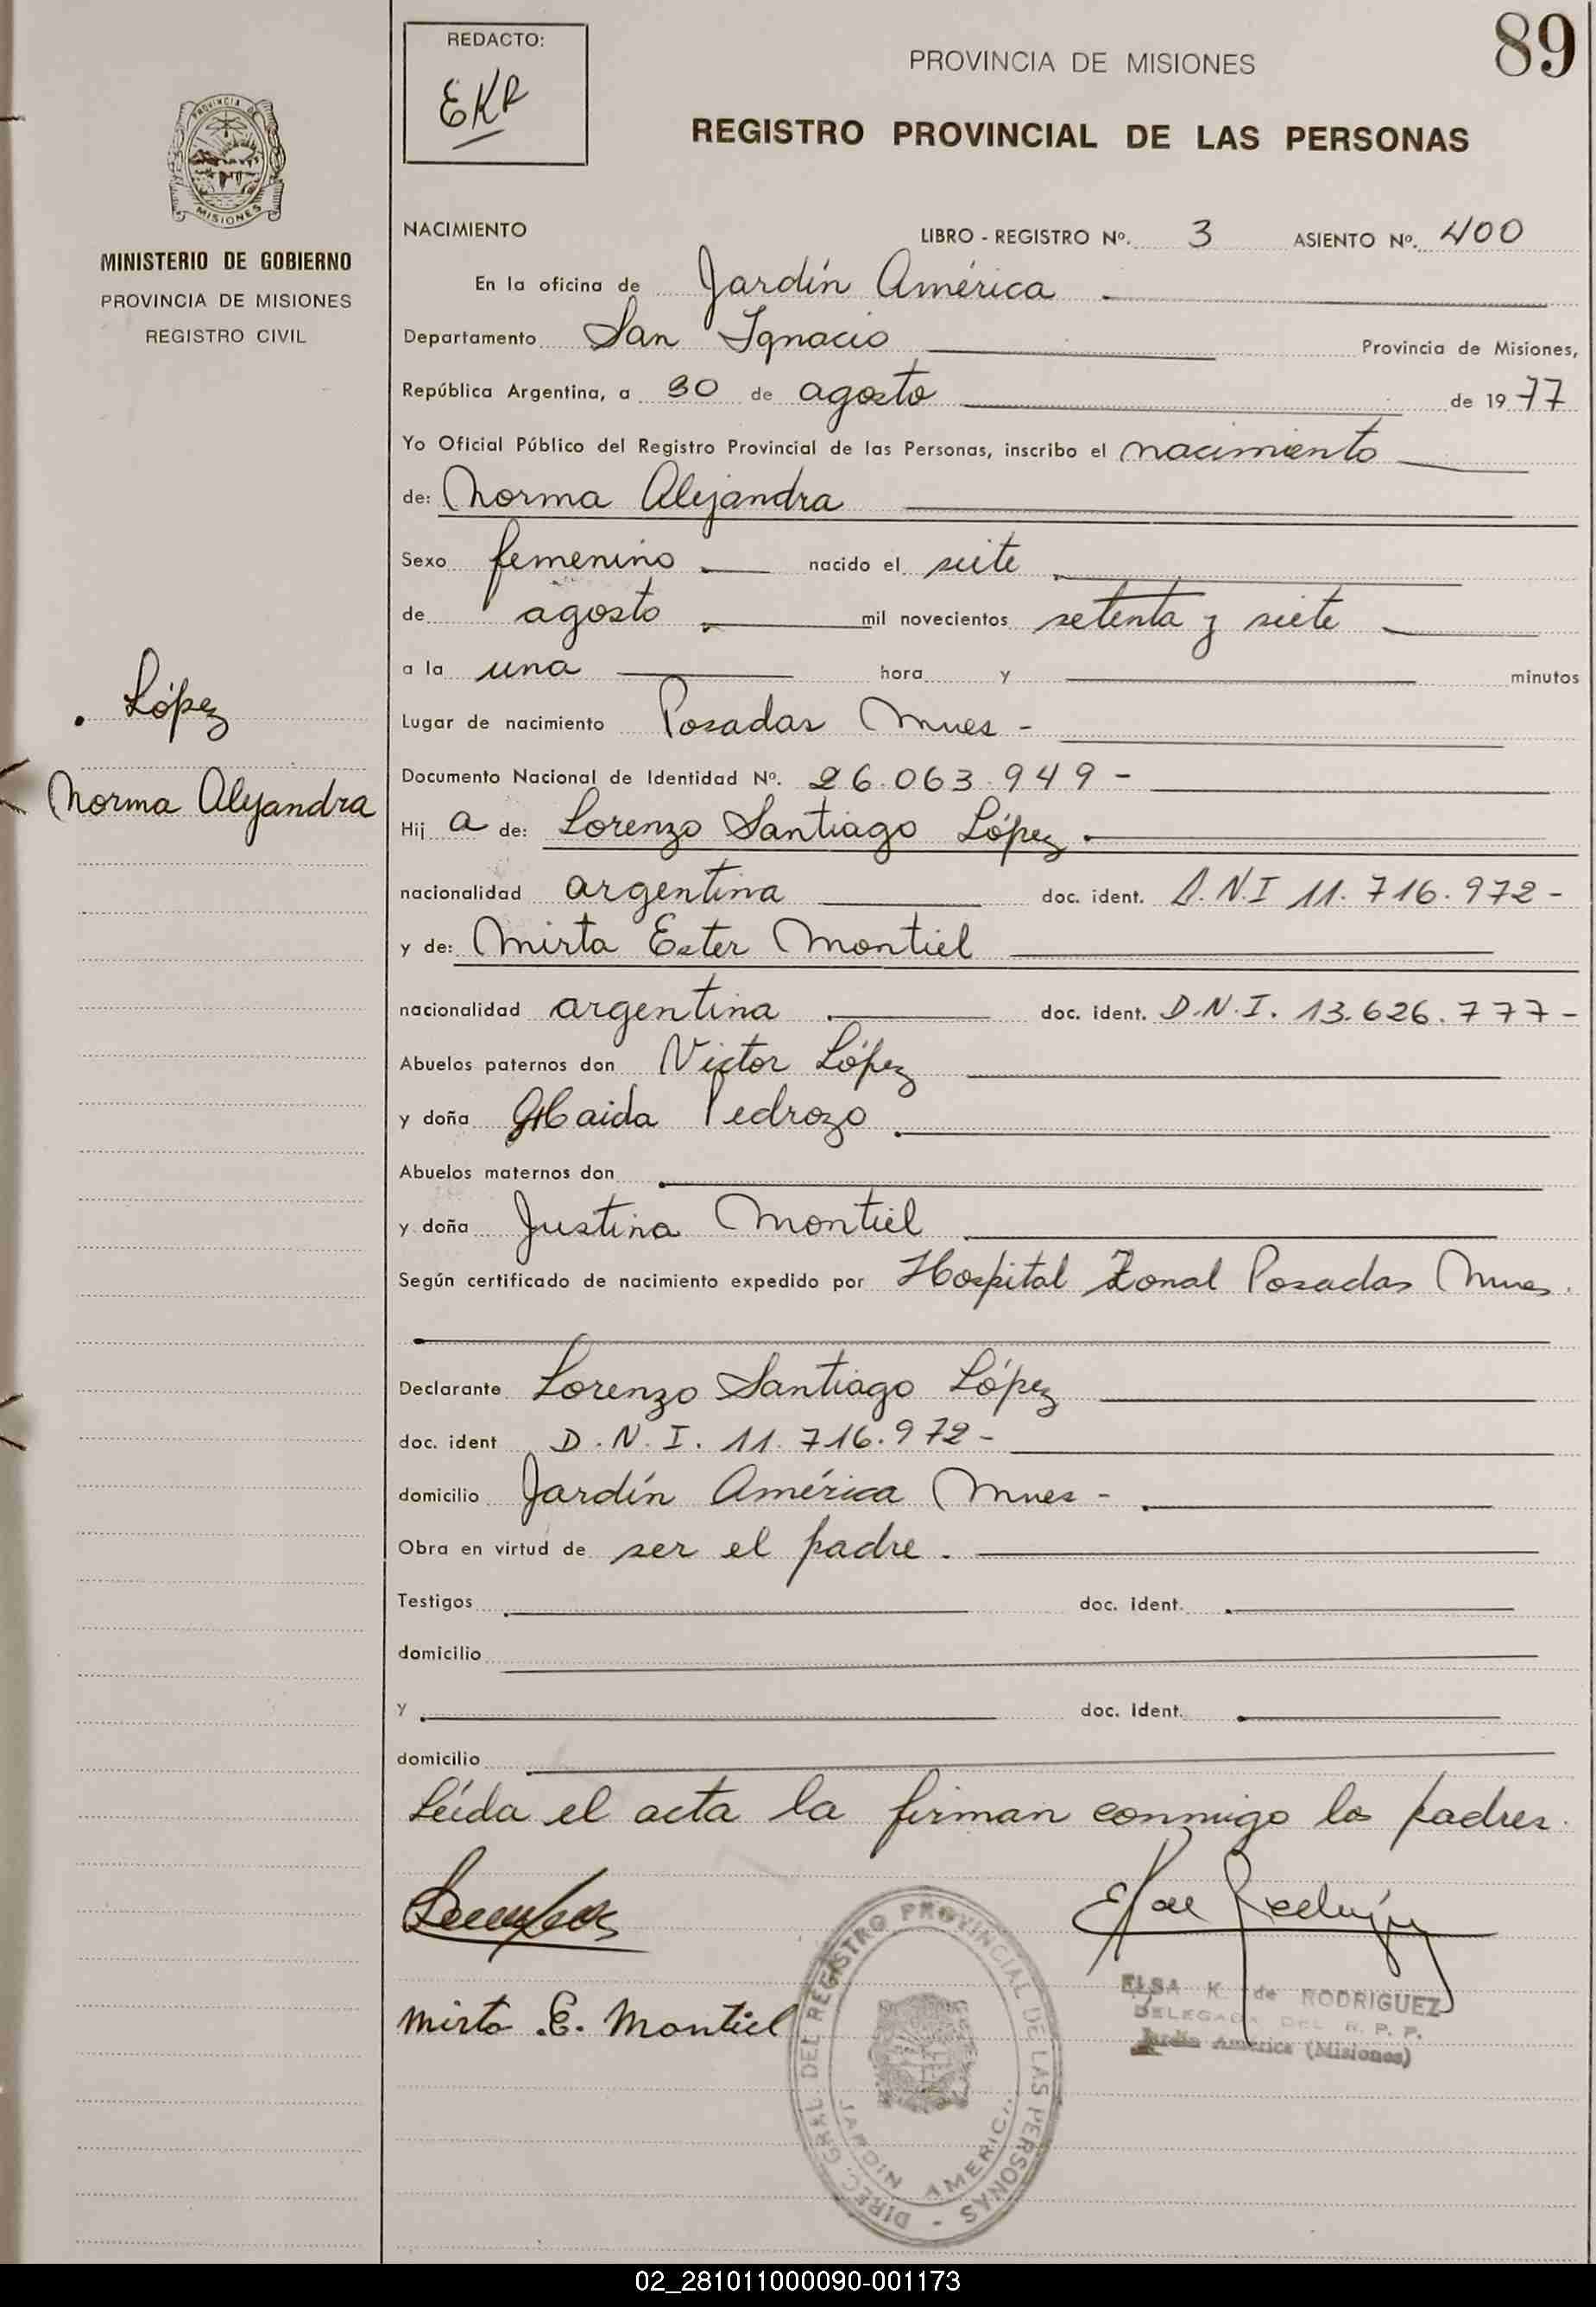 89
REDACTO:
EKR
PROVINCIA DE MISIONES
REGISTRO PROVINCIAL DE LAS PERSONAS
PROVINCIA DE
MISIONES
MINISTERIO DE GOBIERNO
PROVINCIA DE MISIONES
REGISTRO CIVIL
NACIMIENTO LIBRO - REGISTRO Nº. 3 ASIENTO Nº. 400
En la oficina de Jardín América
Departamento San Ignacio Provincia de Misiones,
República Argentina, a 30 de agosto de 1977
Yo Oficial Público del Registro Provincial de las Personas, inscribo el nacimiento
de: Norma Alejandra
Sexo femenino nacido el siete
de agosto mil novecientos setenta y siete
a la una hora y minutos
López
Norma Alejandra
Lugar de nacimiento Posadas Mnes -
Documento Nacional de Identidad Nº. 26.063.949 -
Hij a de: Lorenzo Santiago López
nacionalidad argentina doc. ident. D.N.I 11.716.972 -
y de: Mirta Ester Montiel
nacionalidad argentina doc. ident. D.N.I. 13.626.777 -
Abuelos paternos don Victor López
y doña Haida Pedrozo
Abuelos maternos don
y doña Justina Montiel
Según certificado de nacimiento expedido por Hospital Zonal Posadas Mnes.
Declarante Lorenzo Santiago López
doc. ident D.N.I. 11.716.972 -
domicilio Jardín América Mnes -
Obra en virtud de ser el padre.
Testigos doc. ident.
domicilio
y doc. Ident.
domicilio
Leída el acta la firman conmigo los padres.
Mirta E. Montiel
ELSA K. de RODRIGUEZ
DELEGADA DEL R. P. P.
Jardín América (Misiones)
DIREC. GRAL. DEL REGISTRO PROVINCIAL DE LAS PERSONAS -
JARDIN AMERICA
02_281011000090-001173